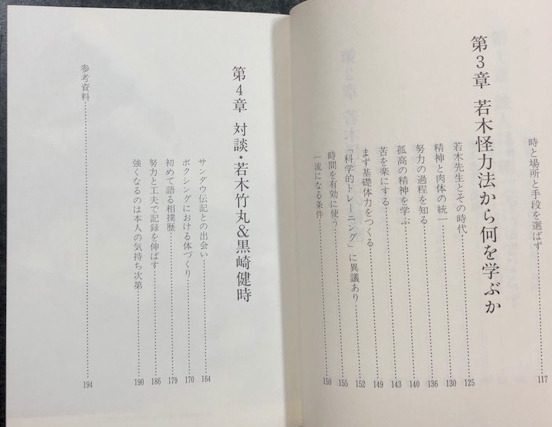 時と場所と手段を選ばず 117
第3章 若木怪力法から何を学ぶか
若木先生とその時代 125
精神と肉体の統一 130
努力の過程を知る 136
孤高の精神を学ぶ 140
苦を楽にする 143
まず基礎体力をつくる 149
「科学的トレーニング」に異議あり 152
時間を有効に使う 155
一流になる条件
第4章 対談・若木竹丸&黒崎健時
サンダウ伝記との出会い 164
ボクシングにおける体づくり 170
初めて語る相撲歴 179
努力と工夫で記録を伸ばす 186
強くなるのは本人の気持ち次第 190
参考資料 194